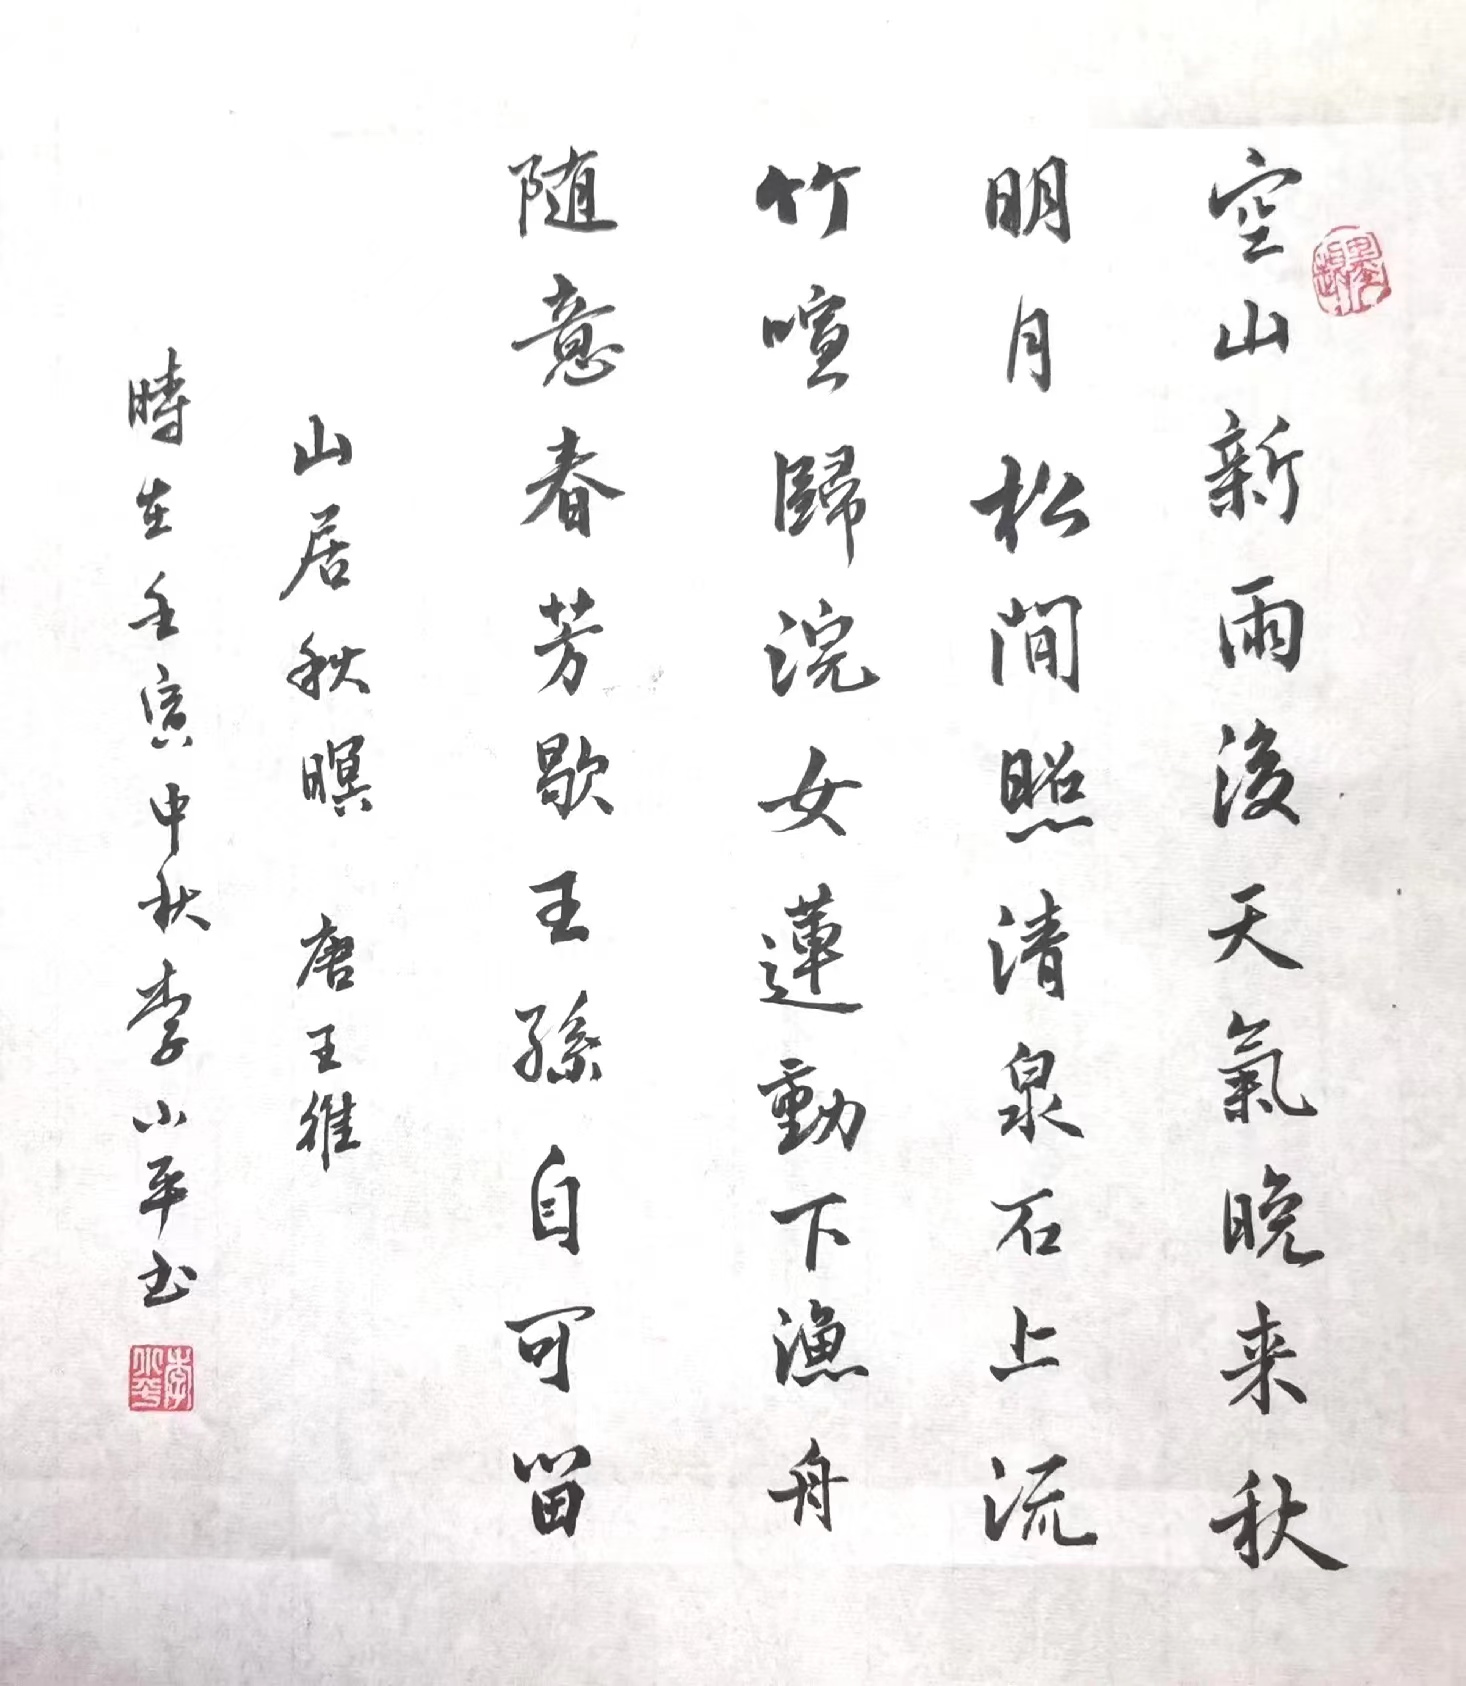 空山新雨後天氣晚来秋
明月松間照清泉石上流
竹喧歸浣女蓮動下漁舟
随意春芳歇王孫自可留
山居秋暝 唐 王維
時在壬寅中秋李小平书
李小平